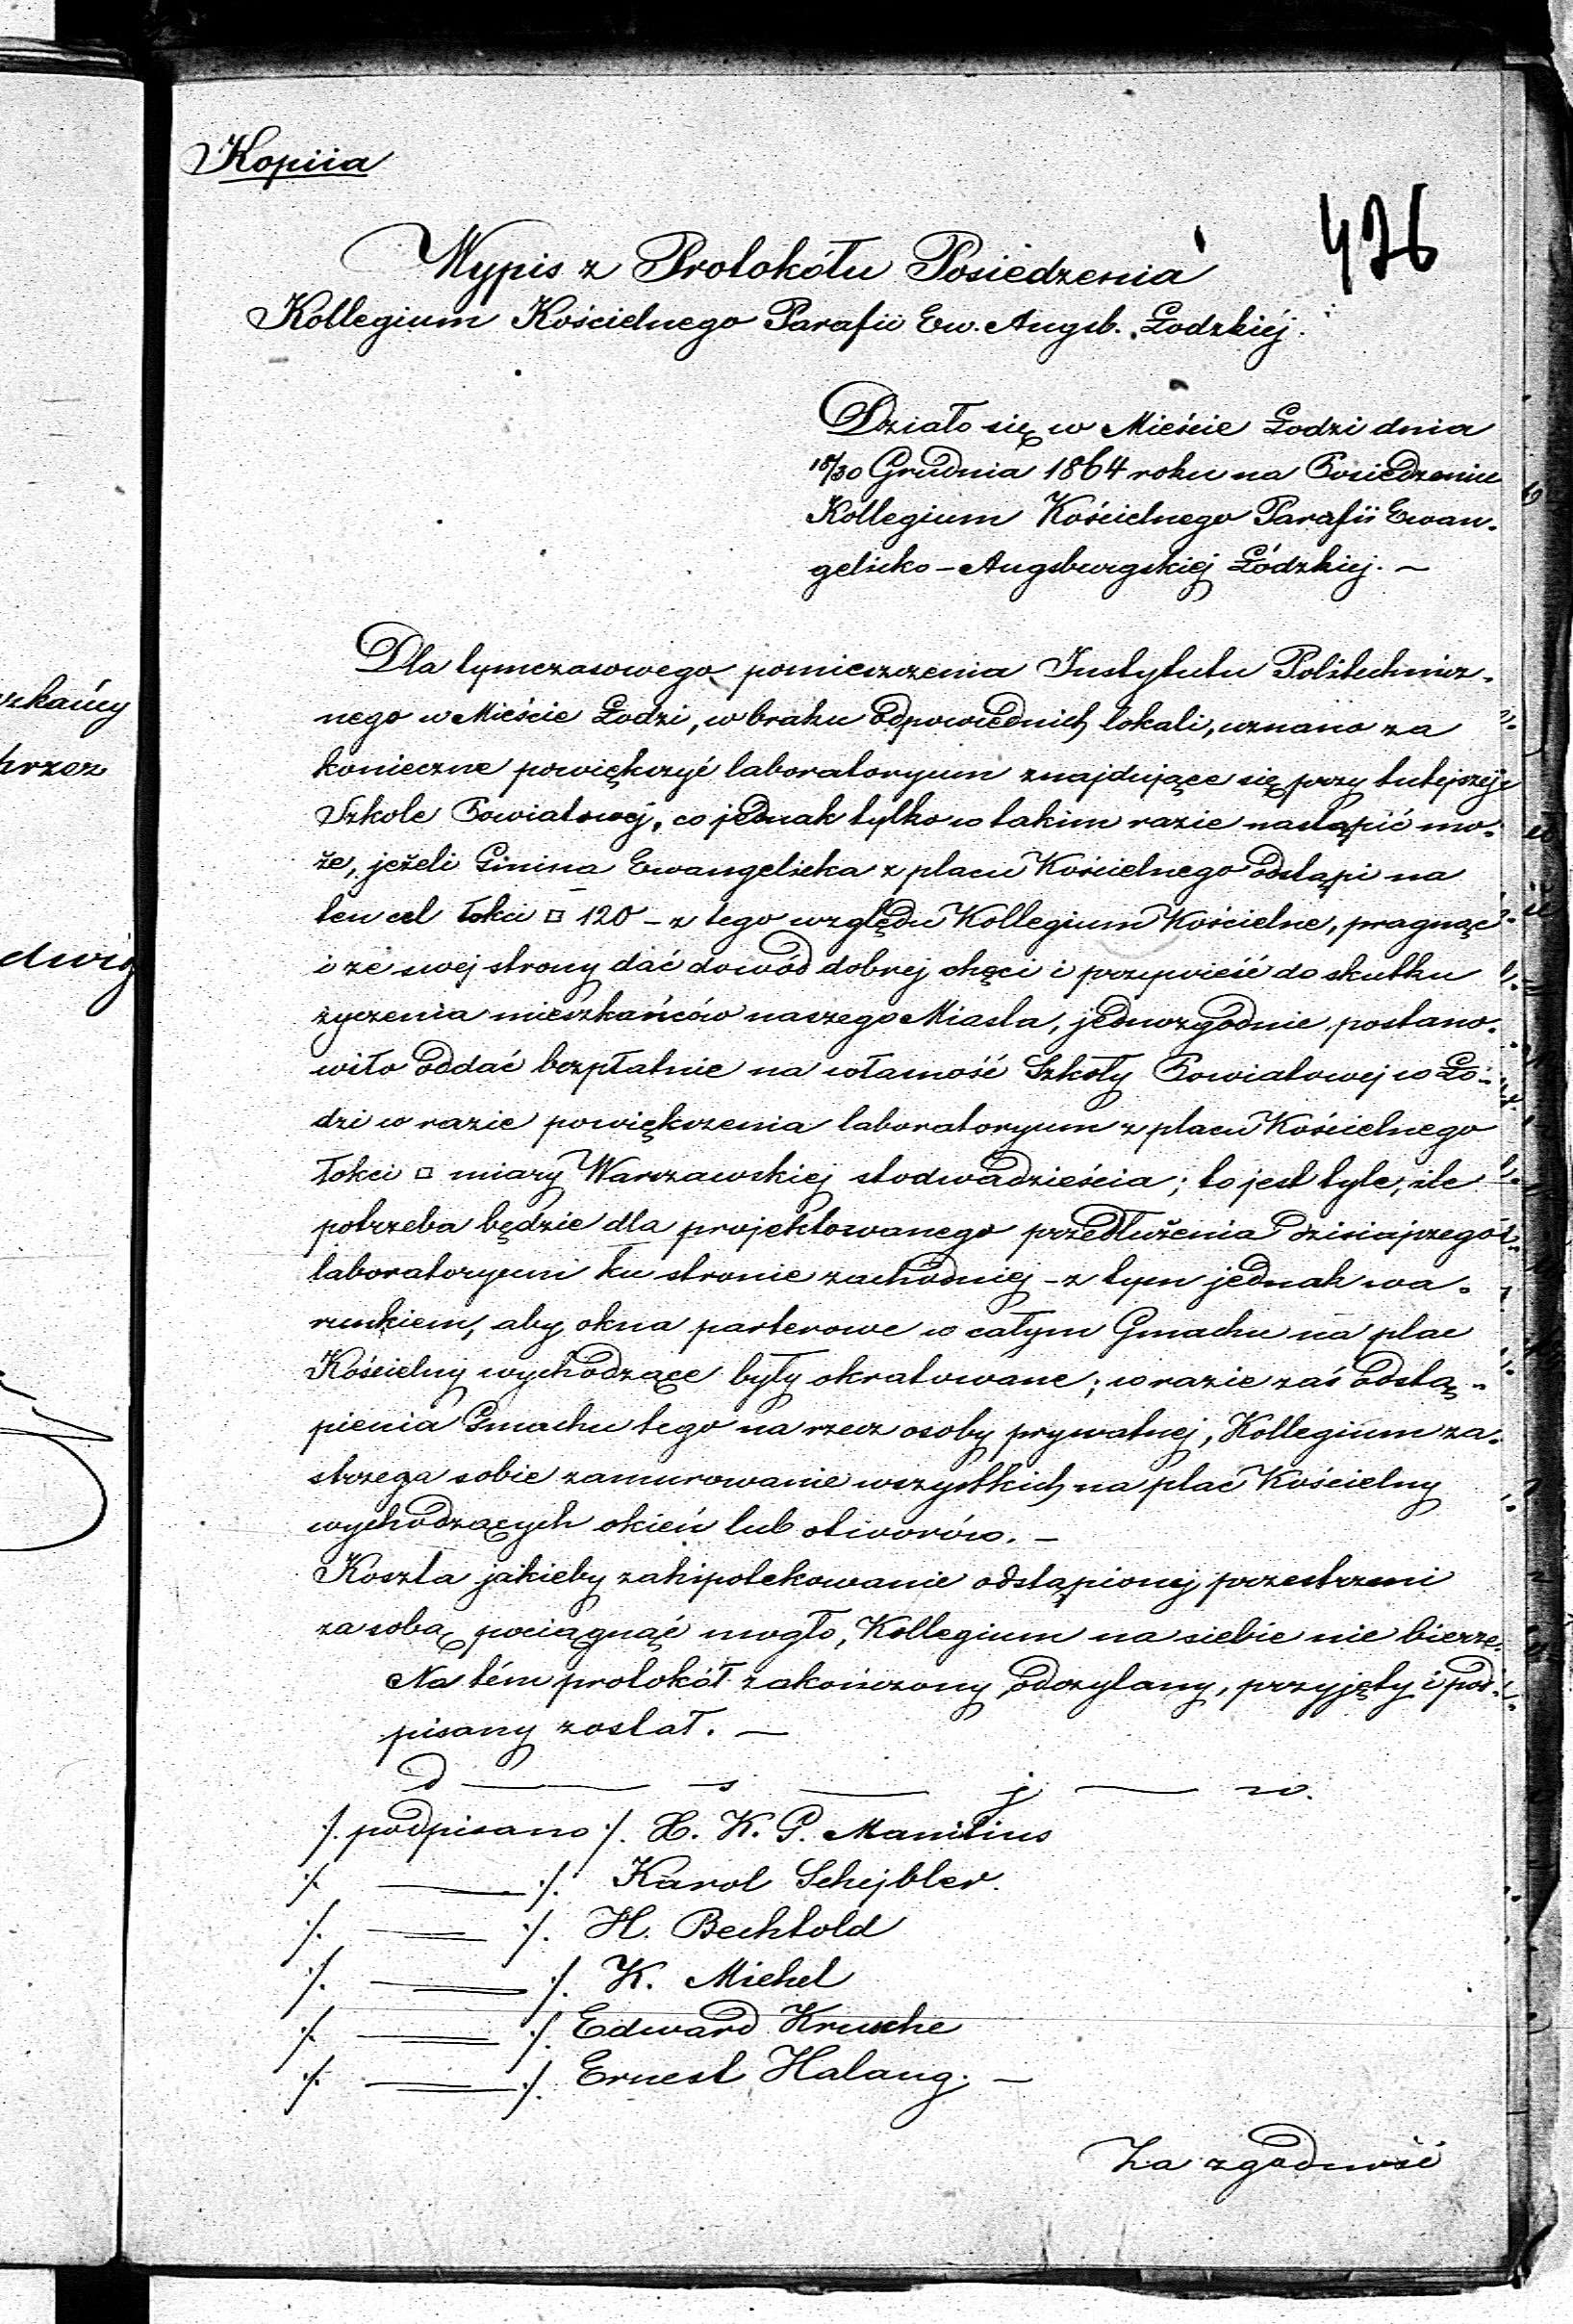 Kopiia
426
Wypis z Protokółu Posiedzenia
Kollegium Kościelnego Parafii Ew. Augsb. Łodzkiéj.
Działo się w Mieście Łodzi dnia
18/30 Grudnia 1864 roku na Posiedzeniu
Kollegium Kościelnego Parafii Ewan-
gelicko-Augsburgskiej Łódzkiej. —
Dla tymczasowego pomieszczenia Instytutu Politechnicz-
nego w Mieście Łodzi, w braku odpowiednich lokali, uznano za
konieczne powiększyć laboratoryum znajdujące się przy tutejszej
Szkole Powiatowej, co jednak tylko w takim razie nastąpić mo-
że, jeżeli Gmina Ewangelicka z placu Kościelnego odstąpi na
ten cel łokci □ 120 – z tego względu Kollegium Kościelne, pragnąc
i ze swej strony dać dowód dobrej chęci i przywieść do skutku
życzenia mieszkańców naszego Miasta, jednozgodnie postano-
wiło oddać bezpłatnie na własność Szkoły Powiatowej w Ło-
dzi w razie powiększenia laboratoryum z placu Kościelnego
łokci □ miary Warszawskiej stodwadzieścia; to jest tyle, ile
potrzeba będzie dla projektowanego przedłużenia dzisiajszego
laboratoryum ku stronie zachodniej – z tym jednak wa-
runkiem, aby okna parterowe w całym Gmachu na plac
Kościelny wychodzące były okratowane; w razie zaś odstą-
pienia Gmachu tego na rzecz osoby prywatnej, Kollegium za-
strzega sobie zamurowanie wszystkich na plac Kościelny
wychodzących okień lub otworów. —
Koszta jakieby zahipotekowanie odstąpionej przestrzeni
za sobą pociągnąć mogło, Kollegium na siebie nie bierze.
Na tém protokół zakończony, odczytany, przyjęty i pod-
pisany został. —
d — s — j — w.
/. podpisano /. H. K. P. Manitius
/. — /. Karol Schejbler.
/. — /. H. Bechtold
/. — /. K. Michel
/. — /. Edward Krusche
/. — /. Ernest Halang. —
Za zgodność